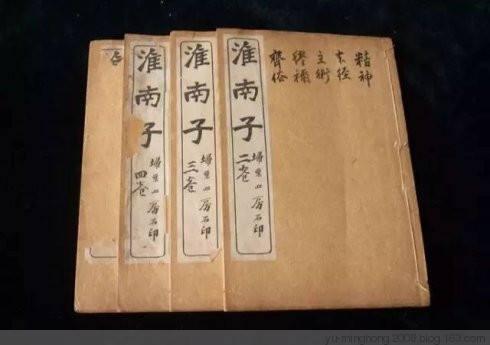 精神
本經
主術
繆稱
齊俗
淮南子
二卷
埽葉山房石印
淮南子
三卷
埽葉山房石印
淮南子
四卷
埽葉山房石印
yu-minghong.2008.blog.163.com